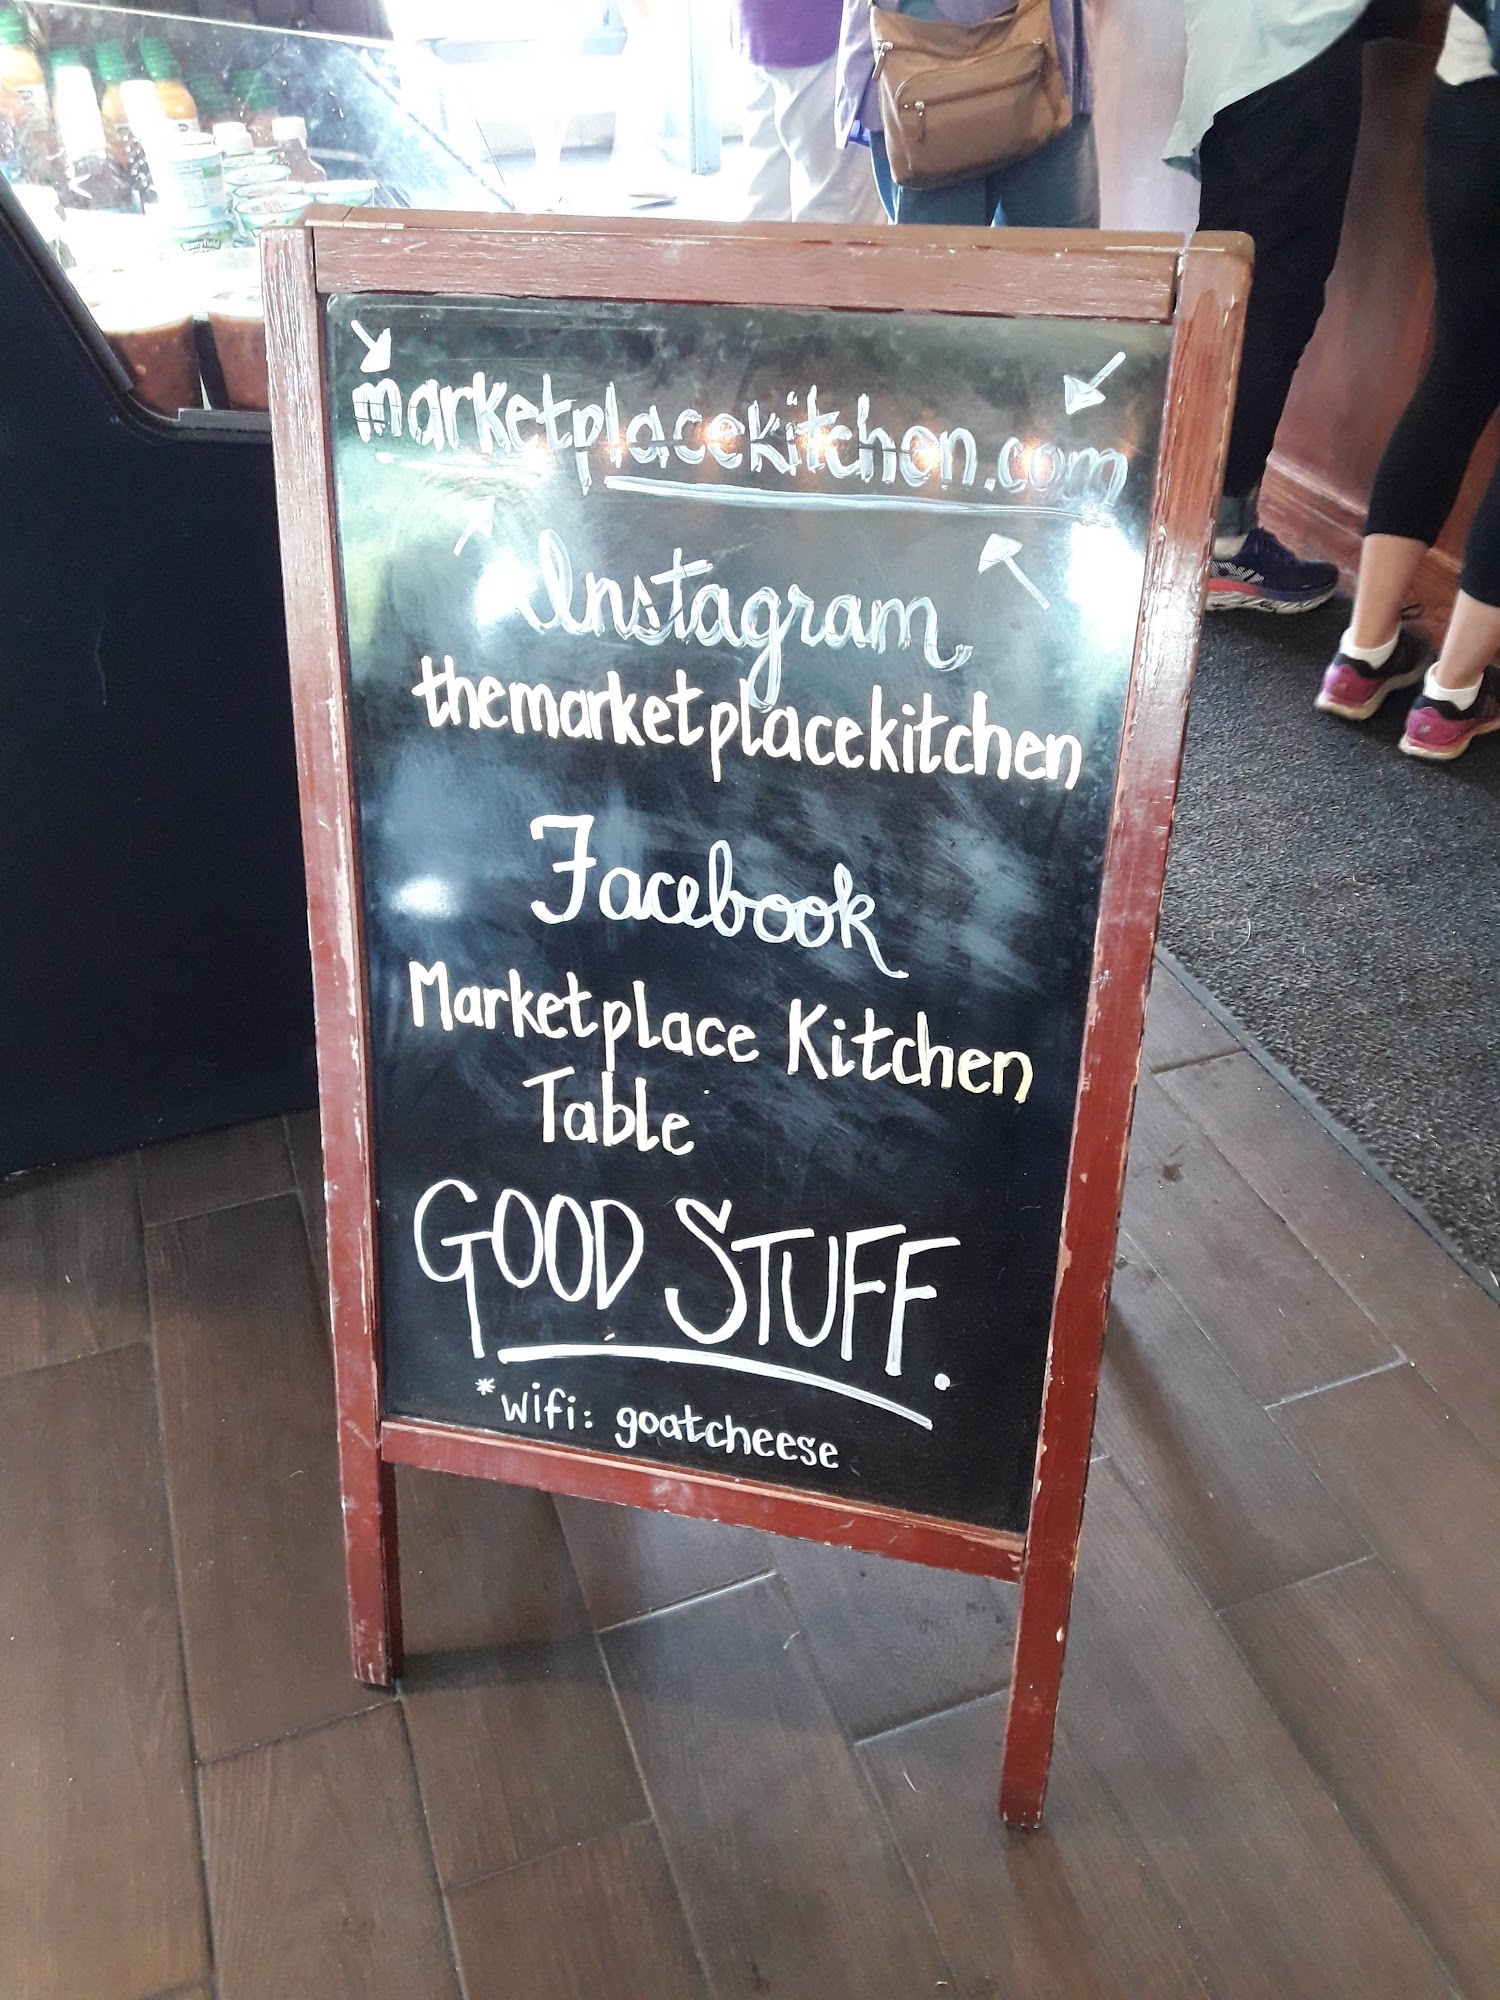 marketplacekitchen.com
Instagram
themarketplacekitchen
Facebook
Marketplace Kitchen
Table
GOOD STUFF.
*wifi: goatcheese